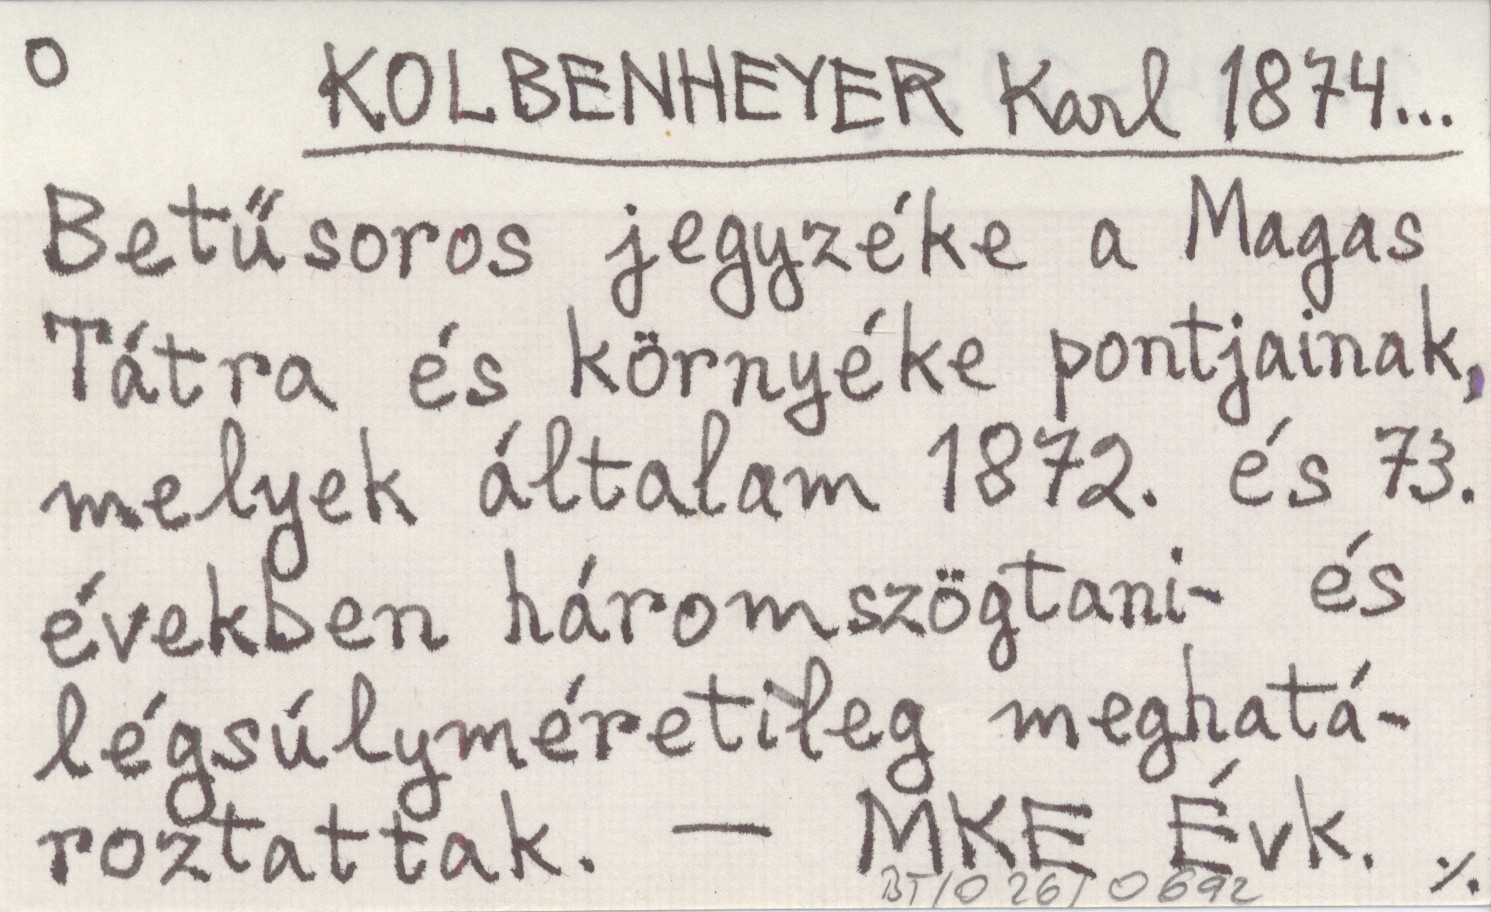 O KOLBENHEYER Karl 1874...
Betűsoros jegyzéke a Magas
Tátra és környéke pontjainak,
melyek általam 1872. és 73.
években háromszögtani- és
légsúlyméretileg meghatá-
roztattak. — MKE Évk. ⁒
BT/O 26/0692